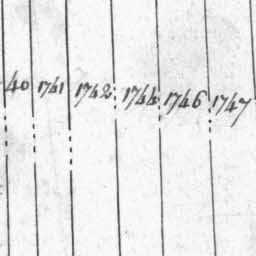 40 1741 1742 1744 1746 1747